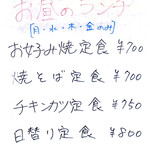 お昼のランチ
[月・水・木・金のみ]
お好み焼定食 ¥700
焼そば定食 ¥700
チキンカツ定食 ¥750
日替り定食 ¥800